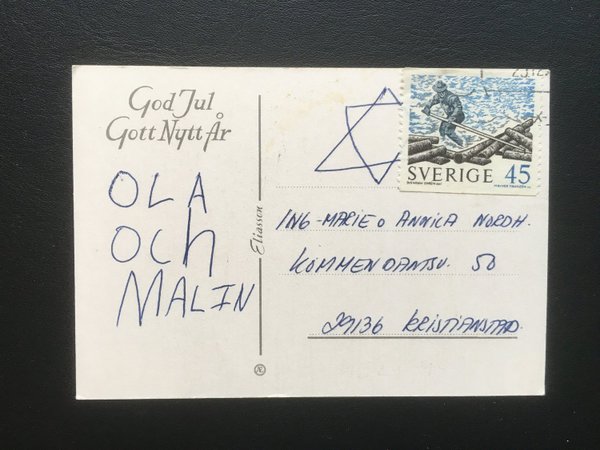 God Jul
Gott Nytt År
OLA
OCH
MALIN
Eliasson
SVERIGE 45
ING-MARIE o ANNICA NORDH.
KOMMENDANTSV. 50
29136 KRISTIANSTAD.